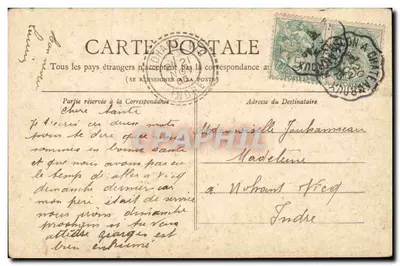 CARTE POSTALE
Tous les pays étrangers n'acceptent pas la correspondance au
(SE RENSEIGNER A LA POSTE)
Partie réservée à la Correspondance
Adresse du Destinataire
Chère tante
Je t'écris ces deux mots
pour te dire que nous
sommes en bonne santé
et que nous avons pas eu
le temps de aller a Vicq
dimanche dernier car
mon père était de service
nous irons dimanche
prochain et tu
Georges est
bien enrhumé
Mademoiselle
Madeleine
a Nohant Vicq
Indre
INDRE